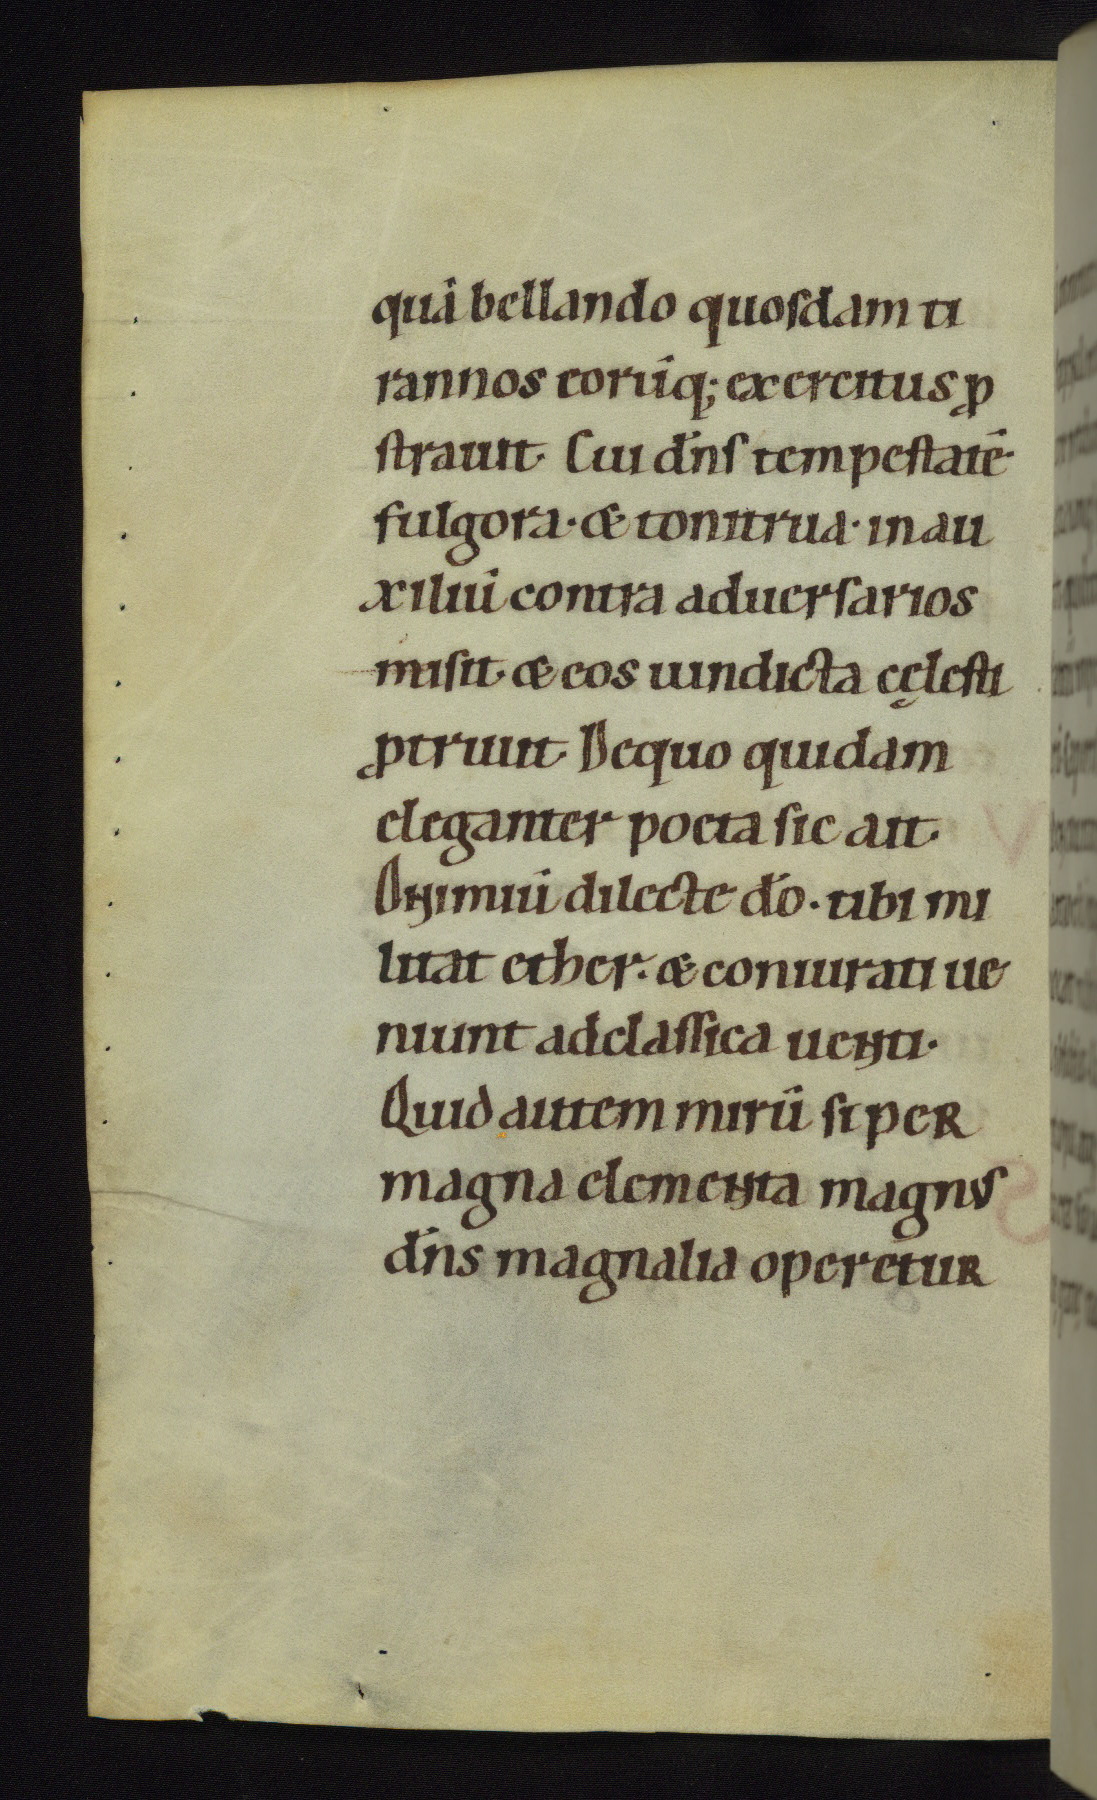 quā bellando quosdam ti
rannos eorūq; exercitus ꝓ
strauit. Cui dn̄s tempestatē.
fulgora. & tonitrua. in au
xiliū contra aduersarios
misit. & eos uindicta cęlesti
ꝓtriuit. De quo quidam
eleganter poeta sic ait.
O nimiū dilecte dō. tibi mi
litat ether. & coniurati ue
niunt ad classica uenti.
Quid autem mirū si per
magna elementa magnus
dn̄s magnalia operetur